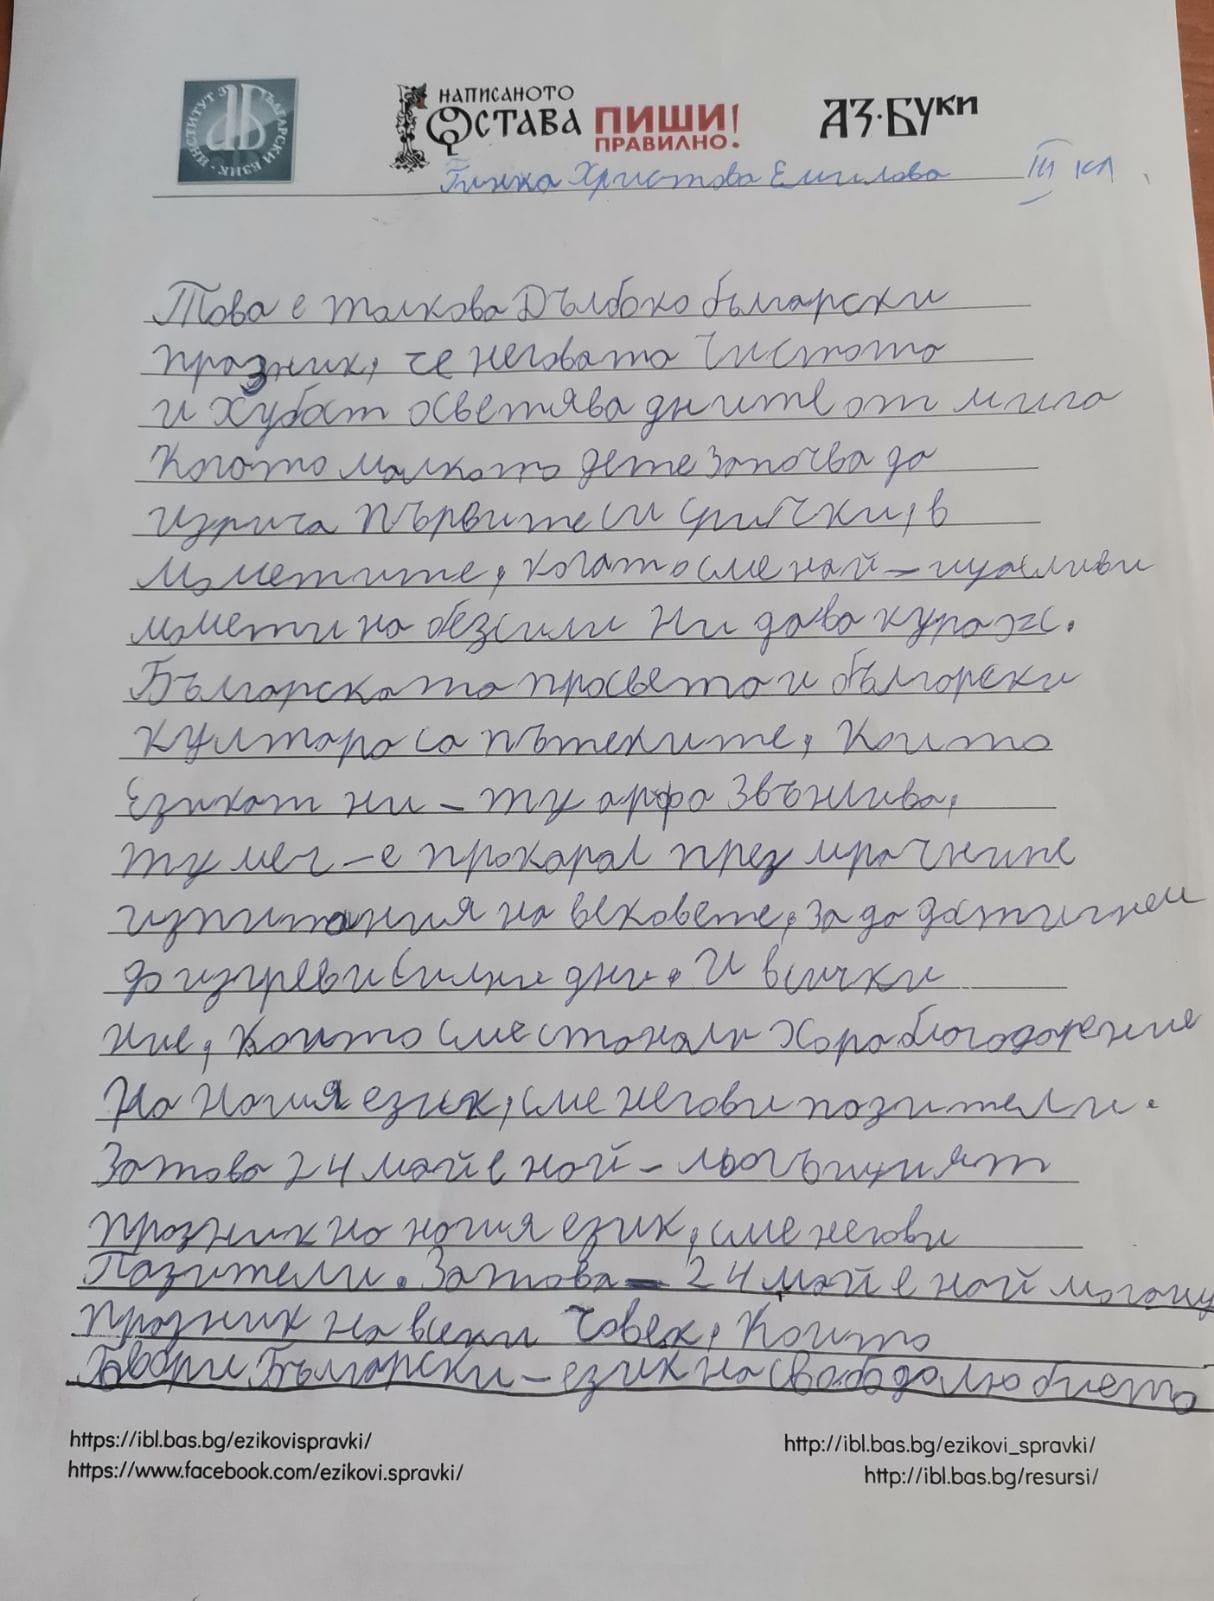 ИНСТИТУТ ЗА БЪЛГАРСКИ ЕЗИК
НАПИСАНОТО ОСТАВА ПИШИ ПРАВИЛНО! АЗ·БУКИ
Гинка Христова Емилова III кл
Това е толкова Дълбоко български
празник, че неговата Чистота
и Хубост осветява дните от мига
Когато малкото дете започва да
изрича първите си срички, в
мометите, когато сме най – щасливи
момети на безсили ни дава кураж.
Българската просвета и български
култара са пътеките, Които
Езикат ни – ту арфа Звънлива,
ту меч – е прокарал през мрачните
изпитания на вековете, за да достигнем
до изгрев и Силни дни. И всички
ние, Които сме станали Хора благодарение
На нашия език, сме негови позители.
Затова 24 май е най –
празник на нашия език, сме негови
Пазители. Затова – 24 май е най могощ
празник на всеки Човек, Които
Говори Български – език на свабодолюбието
https://ibl.bas.bg/ezikovispravki/ http://ibl.bas.bg/ezikovi_spravki/
https://www.facebook.com/ezikovi.spravki/ http://ibl.bas.bg/resursi/